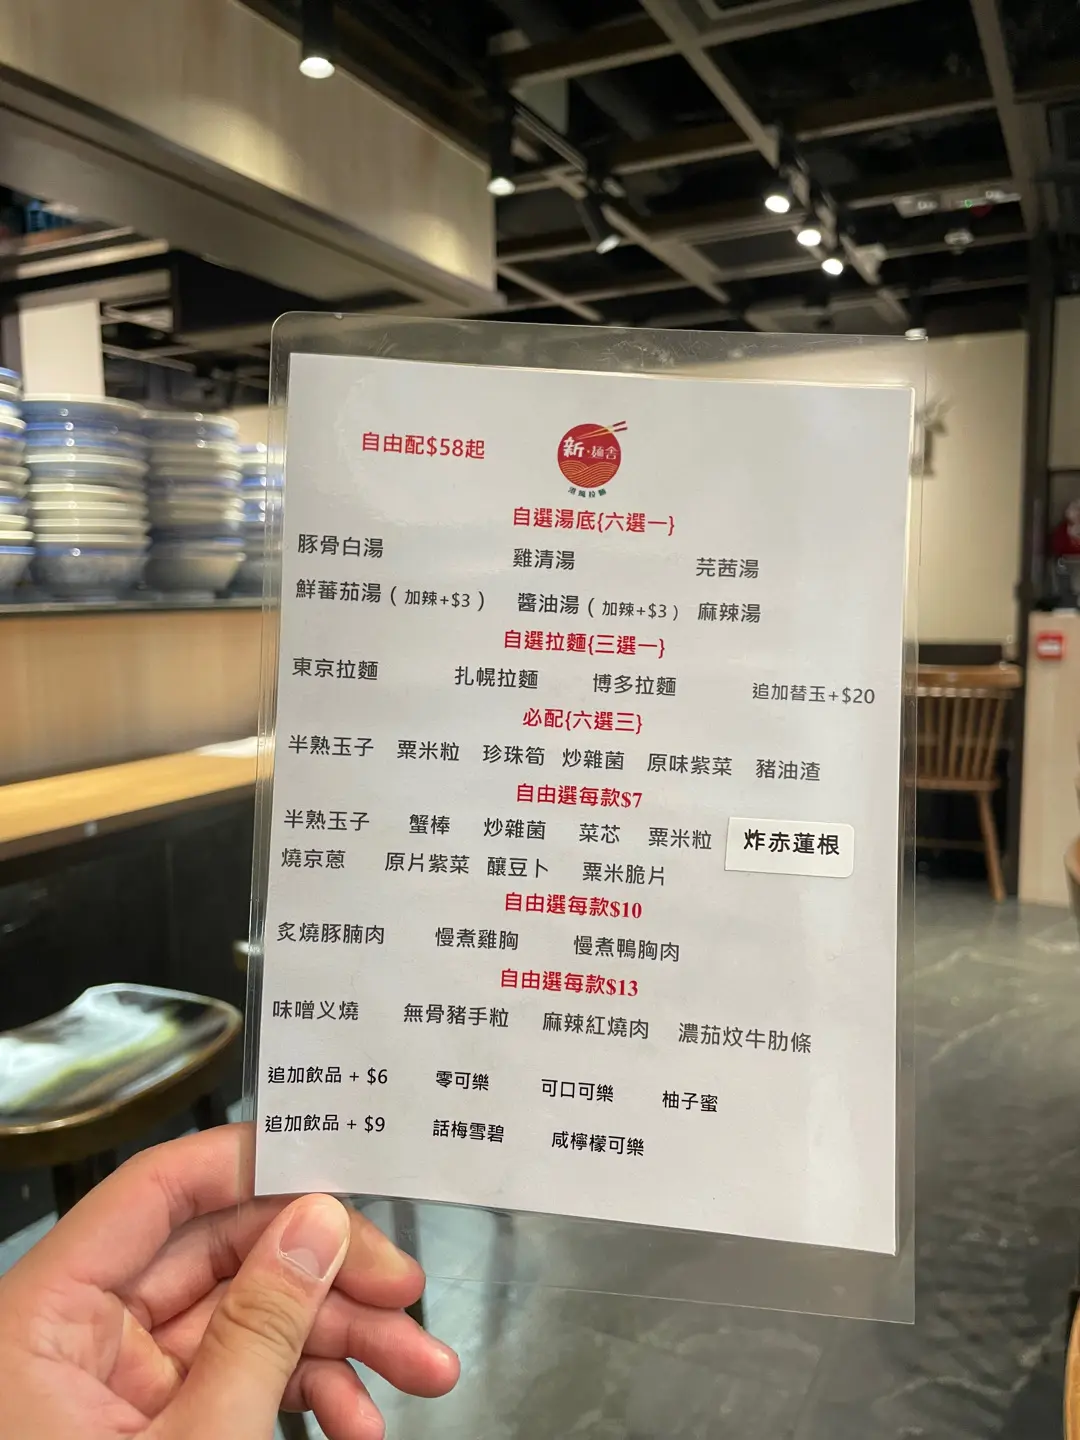 自由配$58起
新·麺舎
港風拉麵
自選湯底{六選一}
豚骨白湯 雞清湯 芫茜湯
鮮蕃茄湯（加辣+$3） 醬油湯（加辣+$3） 麻辣湯
自選拉麵{三選一}
東京拉麵 扎幌拉麵 博多拉麵 追加替玉+$20
必配{六選三}
半熟玉子 粟米粒 珍珠筍 炒雜菌 原味紫菜 豬油渣
自由選每款$7
半熟玉子 蟹棒 炒雜菌 菜芯 粟米粒 炸赤蓮根
燒京蔥 原片紫菜 釀豆卜 粟米脆片
自由選每款$10
炙燒豚腩肉 慢煮雞胸 慢煮鴨胸肉
自由選每款$13
味噌义燒 無骨豬手粒 麻辣紅燒肉 濃茄炆牛肋條
追加飲品 + $6 零可樂 可口可樂 柚子蜜
追加飲品 + $9 話梅雪碧 咸檸檬可樂